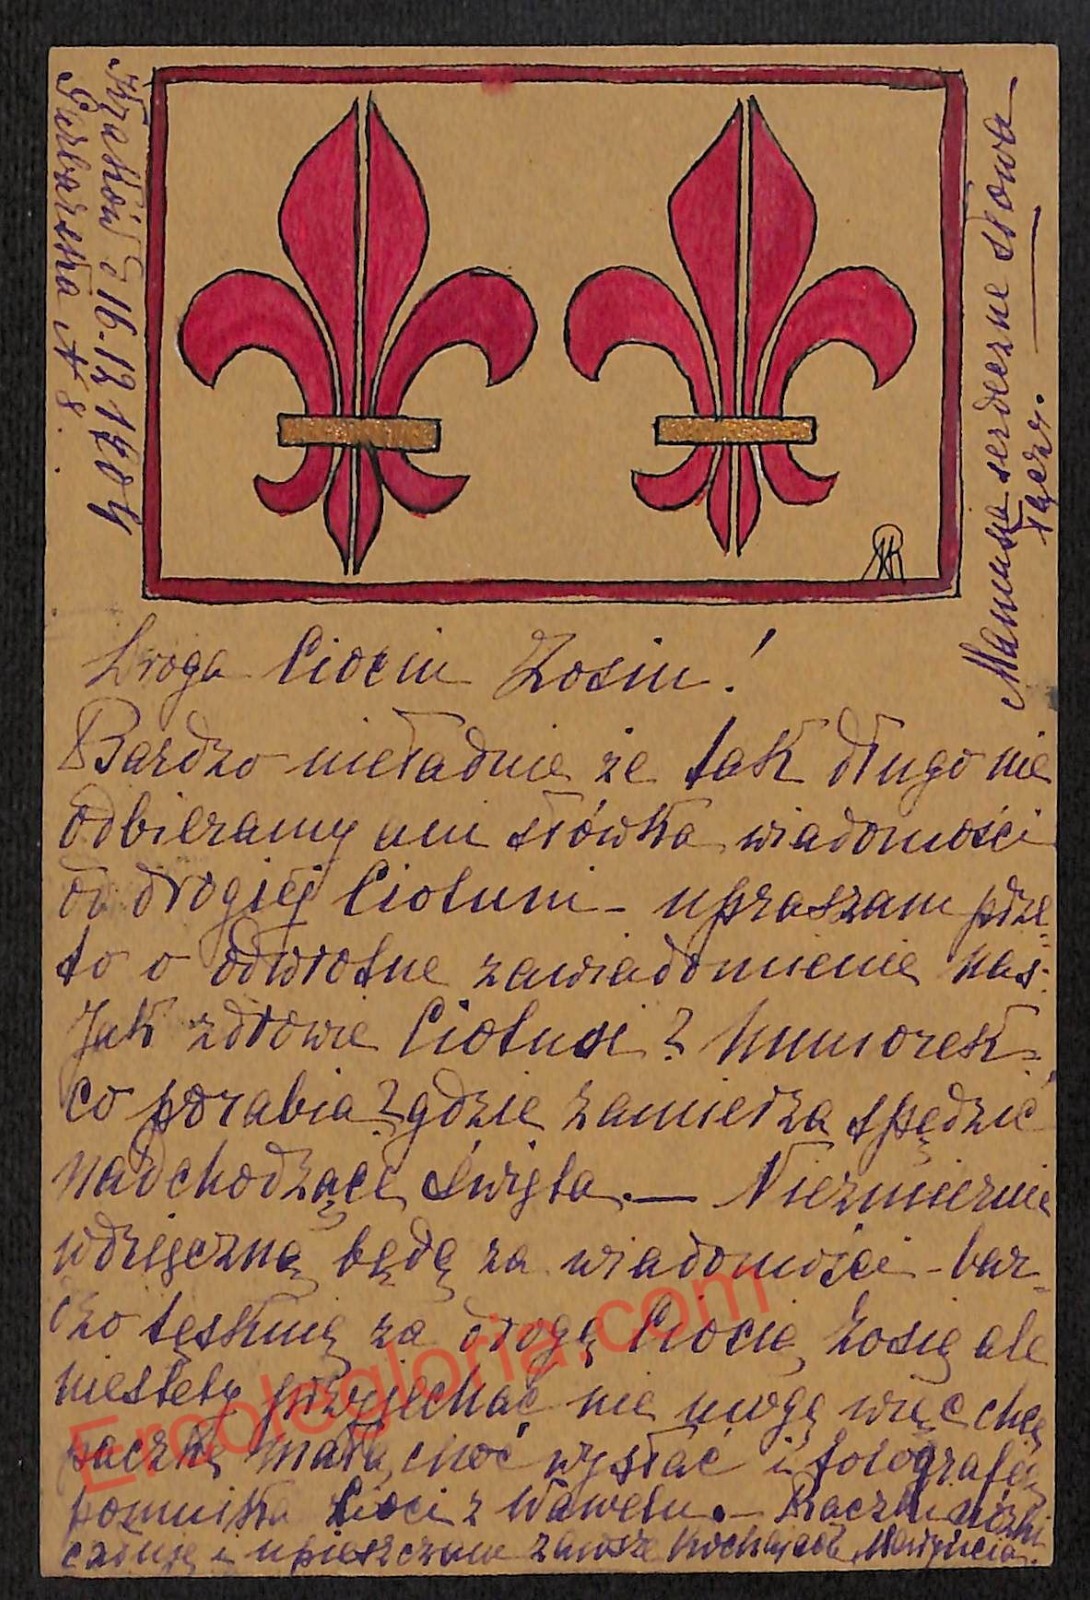 Kraków d 16.12 1904
Garbarska N 8.
Mamusia serdeczne słowa
łączy.
RK
Droga Cociu Zosiu!
Bardzo nieładnie że tak długo nie
odbieramy ani słówka wiadomości
od drogiej Cioluni - upraszam prze-
to o odwrotne zawiadomienie nas.
Jak zdrowie Ciotusi? humorek
co porabia? gdzie zamierza spędzić
nadchodzące święta. — Niezmiernie
wdzięczną będę za wiadomości - bar-
dzo tęsknię za drogą Ciocią Zosią ale
niestety przyjechać nie mogę więc chcę
paczkę małą choć wysłać i fotografię
pomnika Cioci z Wawelu. — Rączki nóżki
całuję i upieszczam zawsze kochająca
Ernolegloria.com